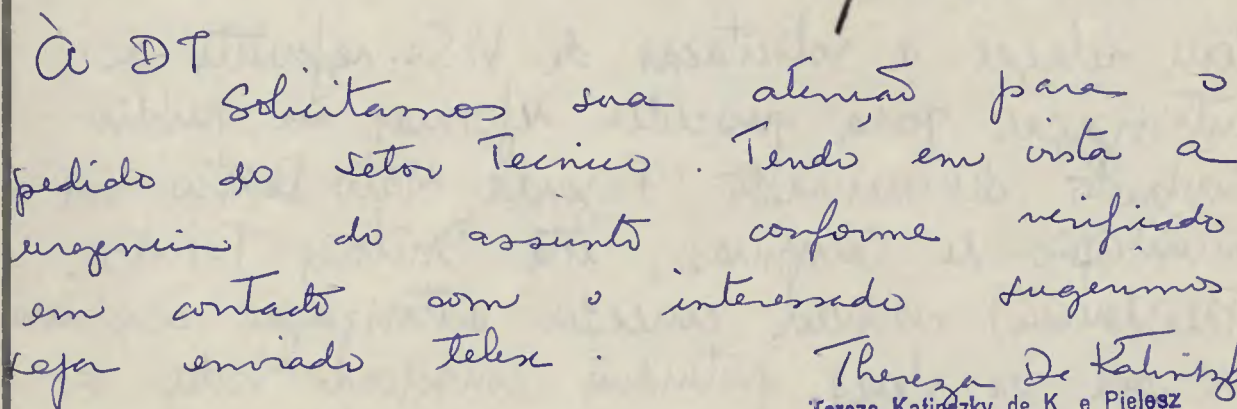 À DT
Solicitamos sua atenção para o
pedido do Setor Tecnico. Tendo em vista a
urgencia do assunto conforme verificado
em contato com o interessado sugerimos
seja enviado telex.
Thereza De Katinszky
Tereza Katinszky de K. e Pielesz